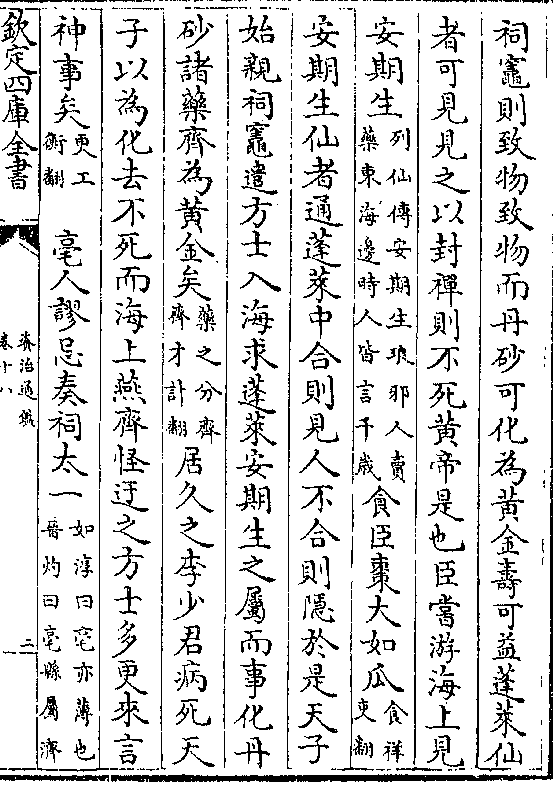 祠竈則致物致物而丹砂可化為黃金壽可益蓬萊仙
者可見見之以封禪則不死黃帝是也臣嘗游海上見
安期生列仙傳安期生琅邪人賣藥東海邊時人皆言千歲食臣棗大如瓜食祥吏翻
安期生仙者通蓬萊中合則見人不合則隱於是天子
始親祠竈遣方士入海求蓬萊安期生之屬而事化丹
砂諸藥齊為黃金矣藥之分齊齊才計翻居久之李少君病死天
子以為化去不死而海上燕齊怪迂之方士多更來言
神事矣更工衡翻亳人謬忌奏祠太一如淳曰亳亦薄也晉灼曰亳縣屬濟
欽定四庫全書
資治通鑑
卷十八
二